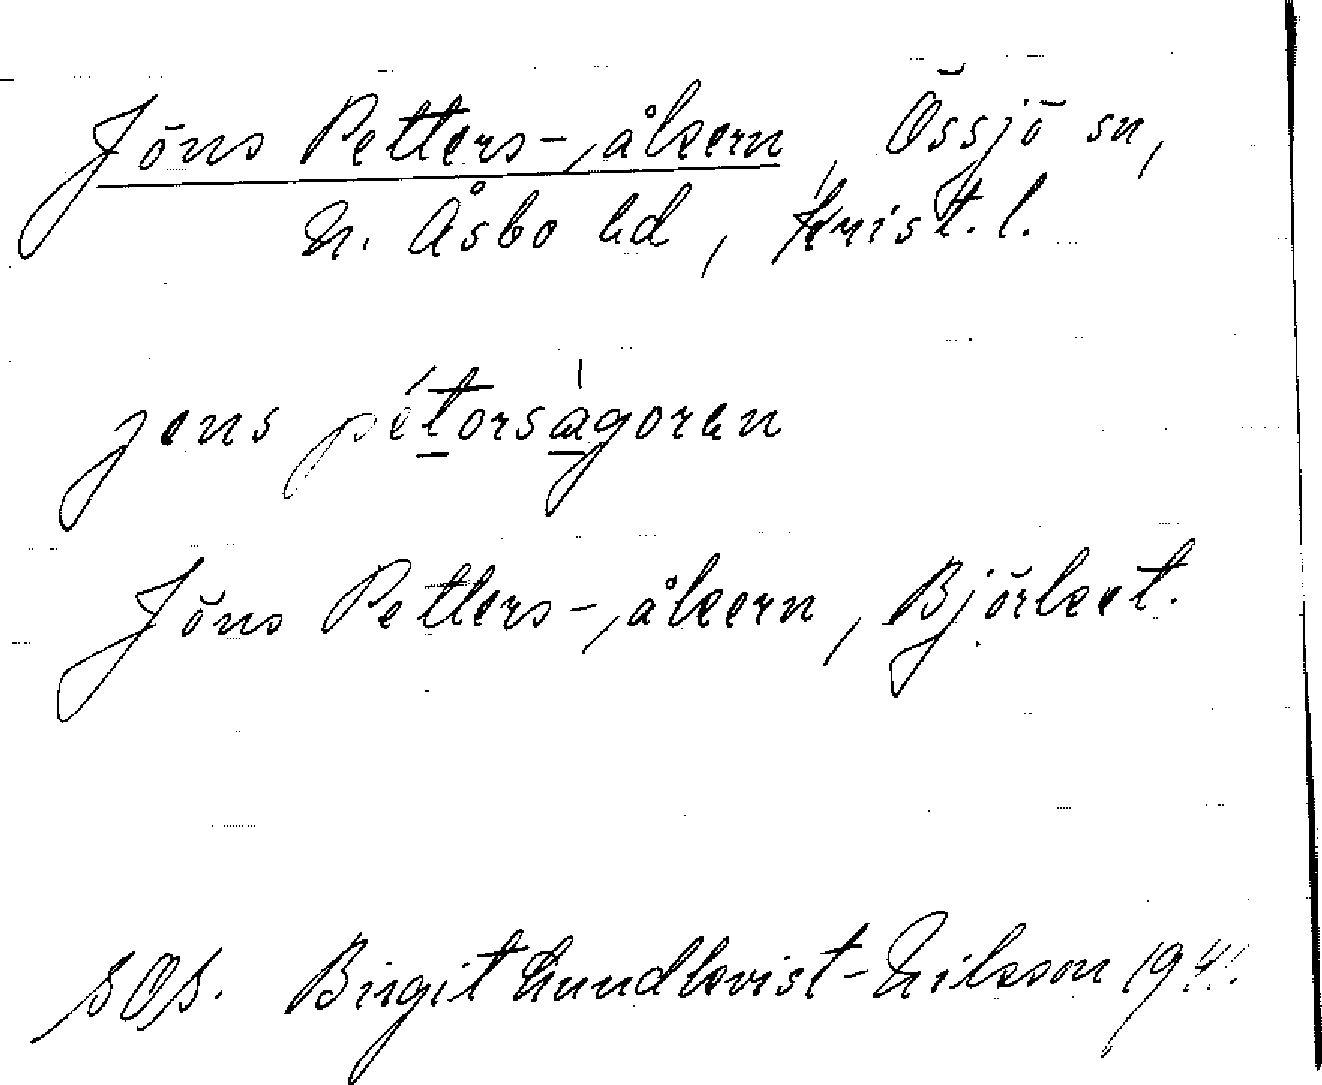 Jöns Petters-,åkern, Össjö sn,
N. Åsbo hd, Krist. l.
jens pétorsàgoren
Jöns Petters-,åkern, Björket.
SOS. Birgit Lundkvist-Nilsson